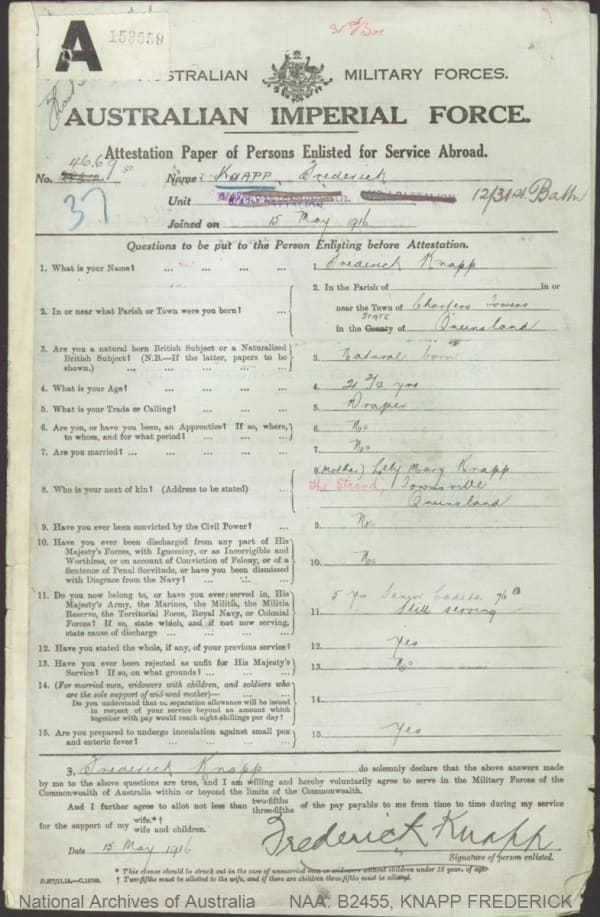 A
153559
3rd Bn.
AUSTRALIAN MILITARY FORCES.
AUSTRALIAN IMPERIAL FORCE.
Attestation Paper of Persons Enlisted for Service Abroad.
No. 4669
Name KNAPP, Frederick
37
Unit 12/31st Battn
Joined on 15 May 1916
Questions to be put to the Person Enlisting before Attestation.
1. What is your Name? ... ... ... ... 1. Frederick Knapp
2. In or near what Parish or Town were you born? ... 2. In the Parish of in or
near the Town of Charters Towers
STATE
in the County of Queensland
3. Are you a natural born British Subject or a Naturalized British Subject? (N.B.—If the latter, papers to be shown.) ... 3. Natural born
4. What is your Age? ... ... ... ... 4. 21 2/12 yrs
5. What is your Trade or Calling? ... ... ... 5. Draper
6. Are you, or have you been, an Apprentice? If so, where, to whom, and for what period? ... ... ... 6. No
7. Are you married? ... ... ... ... ... 7. No
8. Who is your next of kin? (Address to be stated) ... 8. (Mother) Lilly Mary Knapp
The Strand, Townsville
Queensland
9. Have you ever been convicted by the Civil Power? ... 9. No
10. Have you ever been discharged from any part of His
Majesty's Forces, with Ignominy, or as Incorrigible and
Worthless, or on account of Conviction of Felony, or of a
Sentence of Penal Servitude, or have you been dismissed
with Disgrace from the Navy? ... ... ... 10. No
11. Do you now belong to, or have you ever served in, His
Majesty's Army, the Marines, the Militia, the Militia
Reserve, the Territorial Force, Royal Navy, or Colonial
Forces? If so, state which, and if not now serving,
state cause of discharge ... ... ... ... 11. 5 yrs Senior Cadets
Still serving
12. Have you stated the whole, if any, of your previous service? 12. Yes
13. Have you ever been rejected as unfit for His Majesty's
Service? If so, on what grounds? ... ... ... 13. No
14. (For married men, widowers with children, and soldiers who
are the sole support of widowed mother)—
Do you understand that no separation allowance will be issued
in respect of your service beyond an amount which
together with pay would reach eight shillings per day? 14.
15. Are you prepared to undergo inoculation against small pox
and enteric fever? ... ... ... ... 15. Yes
I, Frederick Knapp do solemnly declare that the above answers made
by me to the above questions are true, and I am willing and hereby voluntarily agree to serve in the Military Forces of the
Commonwealth of Australia within or beyond the limits of the Commonwealth.
And I further agree to allot not less than two-fifths three-fifths of the pay payable to me from time to time during my service
for the support of my wife.*† wife and children.
Date 15 May 1916
Frederick Knapp.
Signature of person enlisted.
* This clause should be struck out in the case of unmarried men or widowers without children under 18 years of age
† Two-fifths must be allotted to the wife, and if there are children three-fifths must be allotted.
National Archives of Australia NAA: B2455, KNAPP FREDERICK